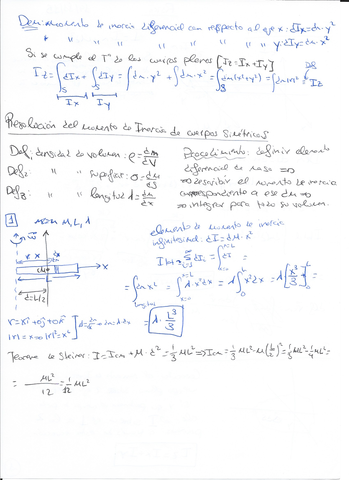 Dem: momento de inercia diferencial con respecto al eje x: dIx = dm·y²
" " " " " " " " y: dIy = dm·x²
Si se cumple el Tª de los cuerpos planos [Iz = Ix + Iy] Def
Iz = ∫_S dIx + ∫_S dIy = ∫dm·y² + ∫dm·x² = ∫_S dm(x²+y²) = ∫dm r² = Iz
Ix Iy
Resolución del momento de Inercia de cuerpos Simétricos
Def₁: densidad de volumen: ρ = dm/dV
Def₂: " " superficie: σ = dm/dS
Def₃: " " longitud λ = dm/dx
Procedimiento: definir elemento
diferencial de masa ⇒
⇒ describir el momento de inercia
correspondiente a ese dm ⇒
⇒ integrar para todo su volumen.
1 M, L, λ
elemento de momento de inercia
infinitesimal: dI = dM·x²
x
d = L/2
= ∫ dm x² = ∫ λ·x² dx = λ∫ x² dx = λ[x³/3] =
= λ·L³/3
|r| = x ⇒ |r|² = x²
Teorema de Steiner: I = Icm + M·d² = 1/3 ML² ⇒ Icm = 1/3 ML² - M(L/2)² = 1/3 ML² - 1/4 ML² =
= ML²/12 = 1/12 ML²